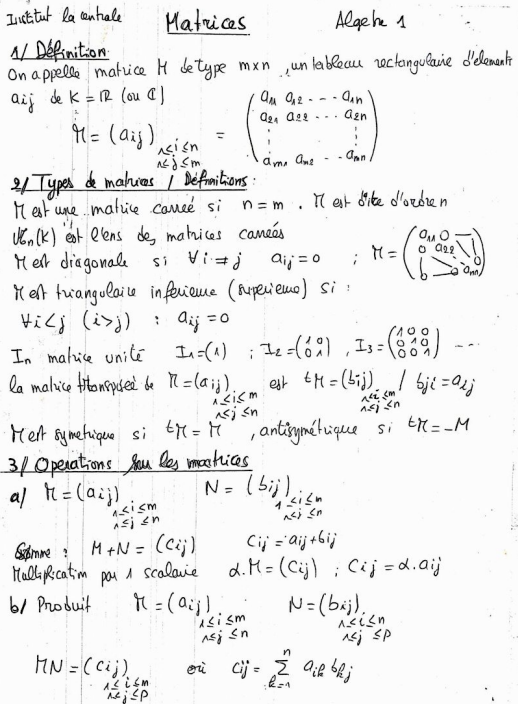 Institut la centrale Matrices Algebre 1
1/ Définition
On appelle matrice M de type m×n, un tableau rectangulaire d'elements
aij de K = ℝ (ou ℂ)
M = (aij) 1≤i≤n 1≤j≤m = ( a11 a12 --- a1n
a21 a22 --- a2n
am1 am2 --- amn )
2/ Types de matrices / Définitions :
M est une matrice carreé si n = m . M est dite d'ordre n
Mn(K) est l'ens des matrices carreés
M est diagonale si ∀ i ≠ j aij = 0 ; M = ( a11 0 0
0 a22 0
0 0 ann )
M est triangulaire inferieure (superieure) si :
∀ i < j (i > j) : aij = 0
In matrice unité I1 = (1) ; I2 = (1 0
0 1) , I3 = (1 0 0
0 1 0
0 0 1) ---
la matrice transposeé de M = (aij) 1≤i≤m 1≤j≤n est tM = (bij) 1≤i≤m 1≤j≤n / bji = aij
M est symetrique si tM = M , antisymétrique si tM = -M
3/ Operations sur les matrices
a) M = (aij) 1≤i≤m 1≤j≤n N = (bij) 1≤i≤m 1≤j≤n
Somme : M + N = (cij) cij = aij + bij
Multiplication par 1 scalaire α.M = (cij) ; cij = α.aij
b) Produit M = (aij) 1≤i≤m 1≤j≤n N = (bij) 1≤i≤n 1≤j≤p
MN = (cij) 1≤i≤m 1≤j≤p où cij = n Σ k=1 aik bkj